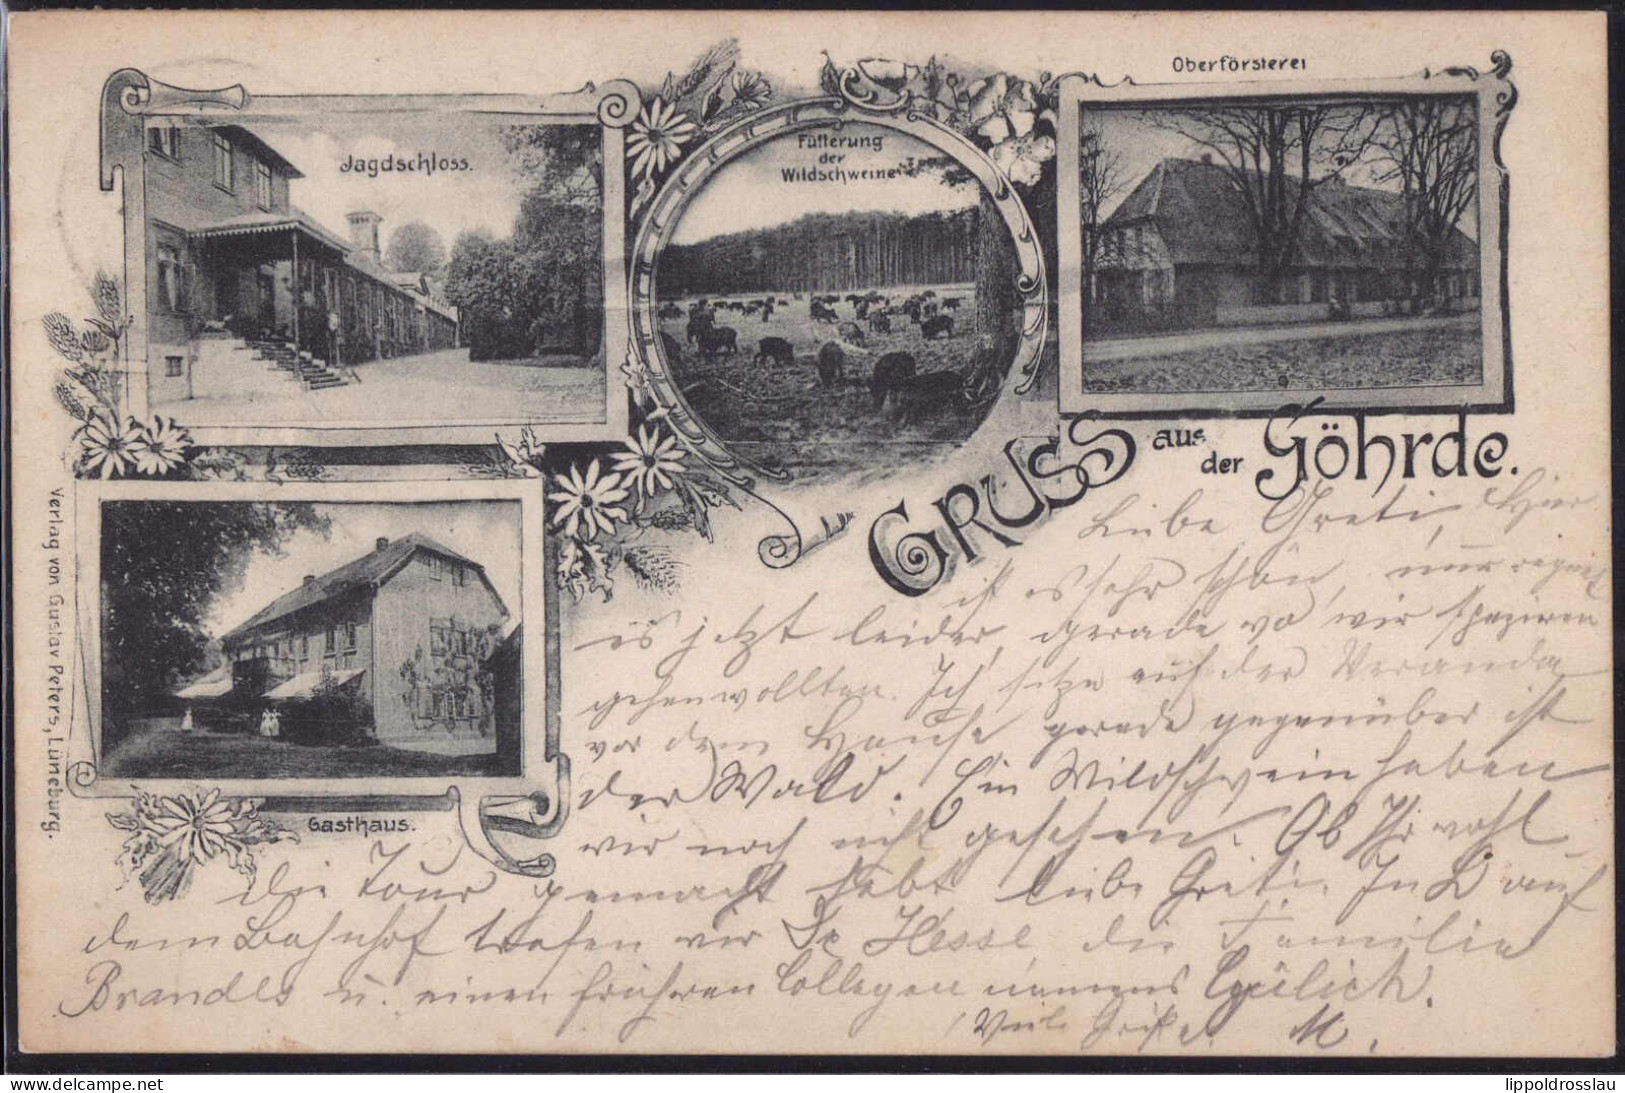 Oberförsterei
Jagdschloss.
Fütterung
der
Wildschweine
GRUSS aus der Göhrde.
Gasthaus.
Verlag von Gustav Peters, Lüneburg.
Liebe Greti, Hier
ist es sehr schön, nur regnet
es jetzt leider, gerade wo wir spaziren
gehen wollten. Ich sitze auf der Veranda
vor dem Hause gerade gegenüber ist
der Wald. Ein Wildschwein haben
wir noch nicht gesehen. Ob Ihr wohl
die Tour gemacht habt liebe Greti. In D auf
dem Bahnhof trafen wir Dr Hesse, die Familie
Brandes u. einen früheren Collegen namens
Viele Grüße. M.
lippoldrosslau